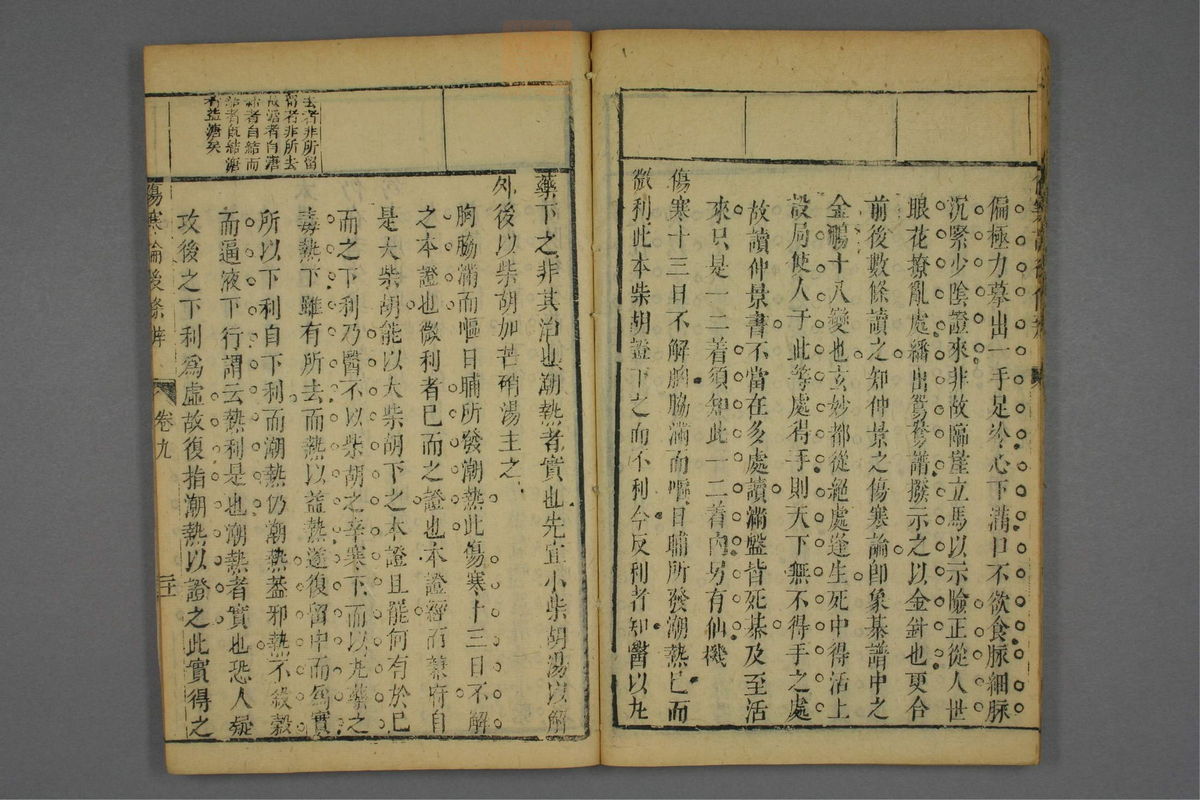 偏極力摹出一手足冷心下滿口不欲食脈細脈
沉緊少陰證來非故臨崖立馬以示險正從人世
眼花撩亂處繡出鴛鴦譜撥示之以金針也更合
前後數條讀之知仲景之傷寒論卽象棊譜中之
金鵬十八變也玄妙都從絕處逢生死中得活上
設局使人于此等處得手則天下無不得手之處
故讀仲景書不當在多處讀滿盤皆死棊及至活
來只是一二着須知此一二着內另有仙機
傷寒十三日不解胸脇滿而嘔日晡所發潮熱已而
微利此本柴胡證下之而不利今反利者知醫以丸
藥下之非其治也潮熱者實也先宜小柴胡湯以解
外後以柴胡加芒硝湯主之
胸脇滿而嘔日晡所發潮熱此傷寒十三日不解
之本證也微利者已而之證也本證經而兼府自
是大柴胡能以大柴胡下之本證且罷何有於已
而之下利乃醫不以柴胡之辛寒下而以丸藥之
毒熱下雖有所去而熱以益熱遂復留中而爲實
所以下利自下利而潮熱仍潮熱蓋邪熱不殺穀
而逼液下行謂云熱利是也潮熱者實也恐人疑
攻後之下利爲虛故復指潮熱以證之此實得之
去者非所留
留者非所去
故溏者自溏
結者自結而
結者既結溏
者益溏矣
傷寒論後條辨
卷九
二十